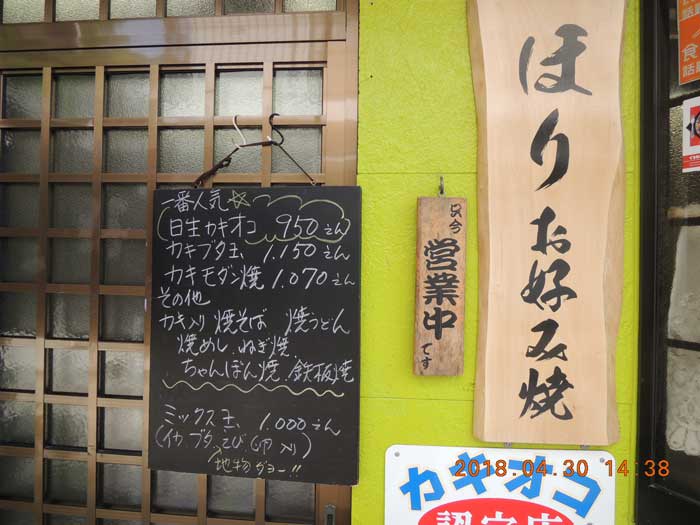 一番人気☆
日生カキオコ 950えん
カキブタ玉 1.150えん
カキモダン焼 1.070えん
その他
カキ入り 焼そば 焼うどん
焼めし、ねぎ焼、
ちゃんぽん焼、鉄板焼
ミックス玉 1.000えん
(イカ、ブタ、えび(卵入り)
地物ダヨー!!
只今
営業中
です
ほりお好み焼
カキオコ
認定店
食
話題
2018.04.30 14:38